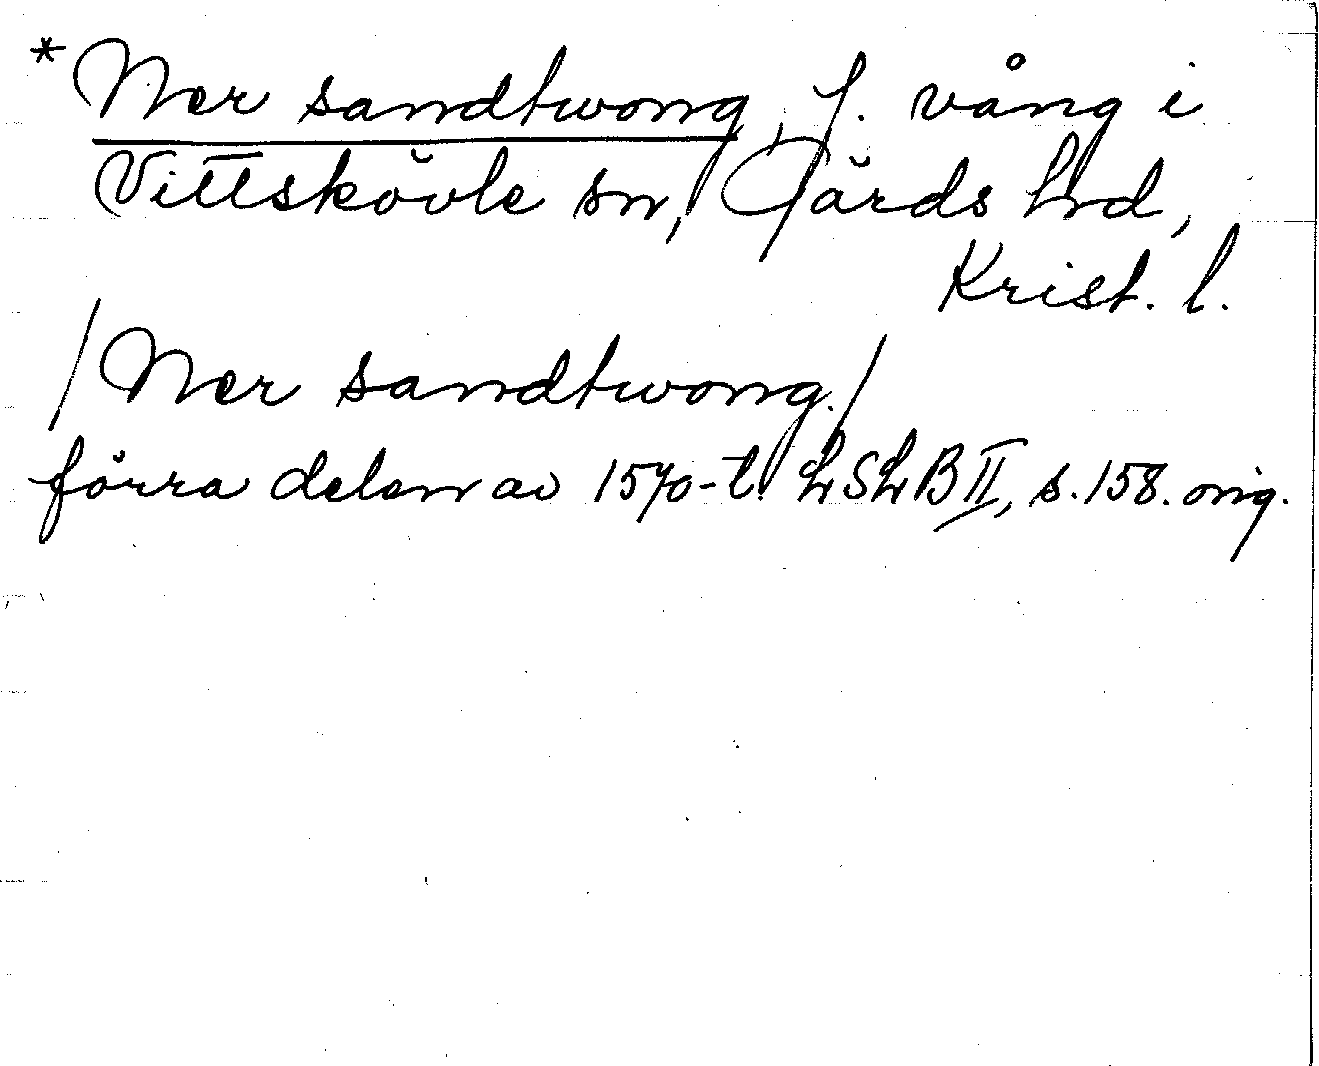 *Ner sandtwong, f. vång i
Vittskövle sn, Gärds hrd,
Krist. l.
/Ner sandtwong./
förra delen av 1570-t. LSLB II, s. 158. orig.